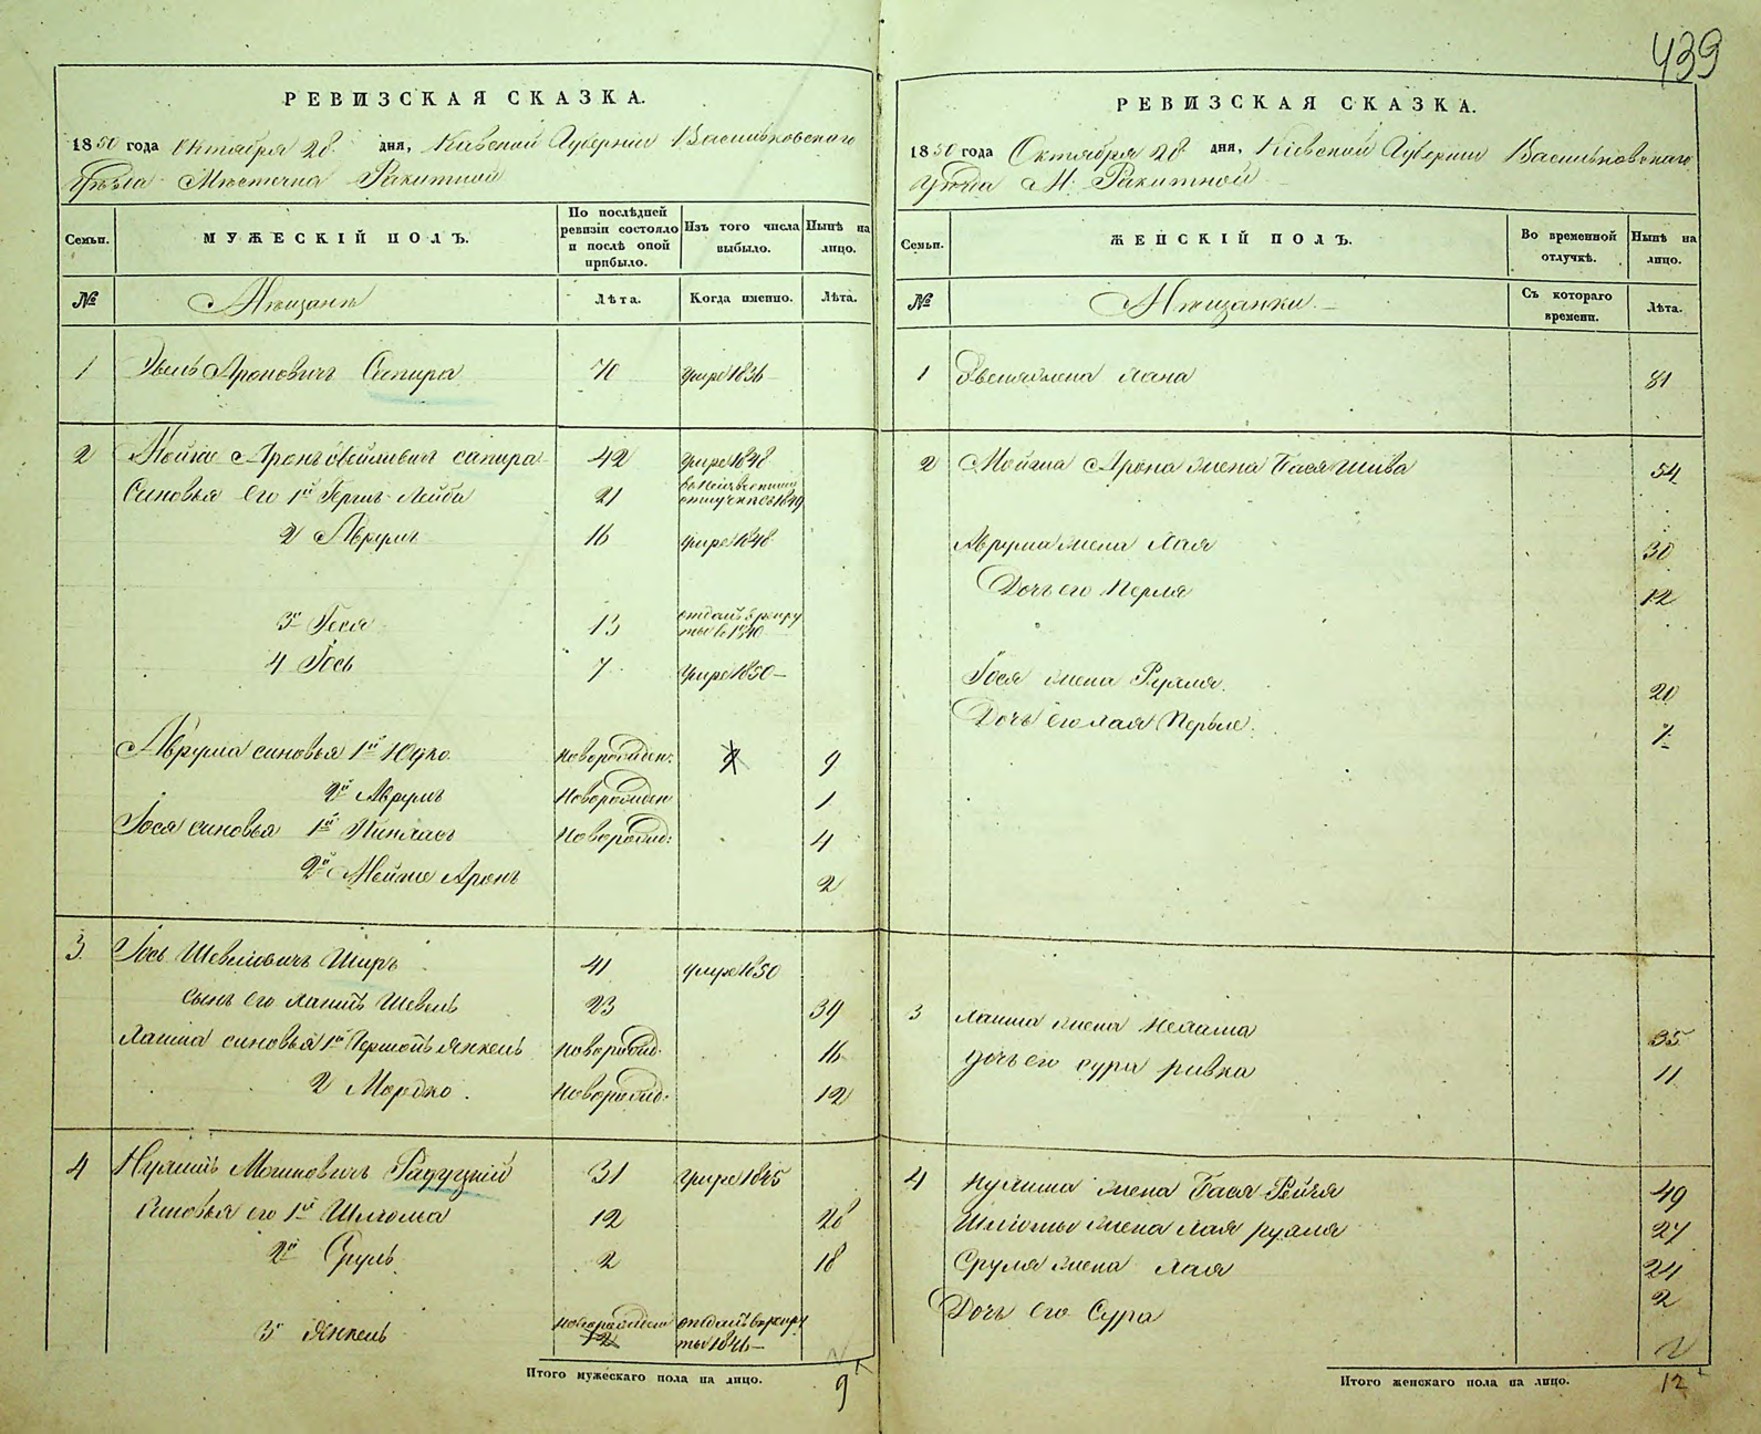 439
РЕВИЗСКАЯ СКАЗКА.
1850 года Октября 28 дня, Киевской Губернии Васильковскаго
Уѣзда Мѣстечка Ракитной
Семьи. МУЖЕСКІЙ ПОЛЪ. По послѣдней ревизіи состояло и послѣ оной прибыло. Изъ того числа выбыло. Нынѣ на лицо.
№ Мѣщане Лѣта. Когда именно. Лѣта.
1 Ароновичъ Сапира 70 умре 1836
2 Мойше Аронъ сапира 42 умре 1848
Синовья его 1й Герш Лейба 21 1849
2 Аврумъ 16 умре 1848
3й Геся 13 отданъ в рекру
ты в 1840
4 Іось 7 умре 1850
Аврума синовья 1й Юдко новорожден. 9
2й Аврумъ новорожден 1
Іося синовья 1й Пинхасъ новорожд: 4
2й Мойше Аронъ 2
3 Іось Шевелiовичъ Ширъ 41 умре 1850
сынъ его Хаимъ Шевель 23 39
Хаима синовья 1й Янкель новорожд. 16
2 Мордко новорожд. 12
4 Нухимъ Мошковичъ Радуцкий 31 умре 1845
Синовья его 1й Шлиома 12 28
2й Сруль 2 18
3й Янкель новорожден 12 отданъ в рекру
ты 1846
Итого мужескаго пола на лицо. 9
РЕВИЗСКАЯ СКАЗКА.
1850 года Октября 28 дня, Кіевской Губернии Васильковскаго
Уѣзда М. Ракитной
Семьи. ЖЕНСКІЙ ПОЛЪ. Во временной отлучкѣ. Нынѣ на лицо.
№ Мѣщанки. Съ котораго времени. Лѣта.
1 жена Хана 81
2 Мойша Арона жена Бася Шива 54
Аврума жена Хая 30
Дочь его Перля 12
Іося жена Рухля. 20
Дочь его Хая Перые. 7
3 Хаима жена Нехама 35
дочь его сура ривка 11
4 Нухима жена Бася Рейзя 49
Шлiомы жена Хая рухля 27
Сруля жена Хая 24
Дочь его Сура 2
Итого женскаго пола на лицо. 12